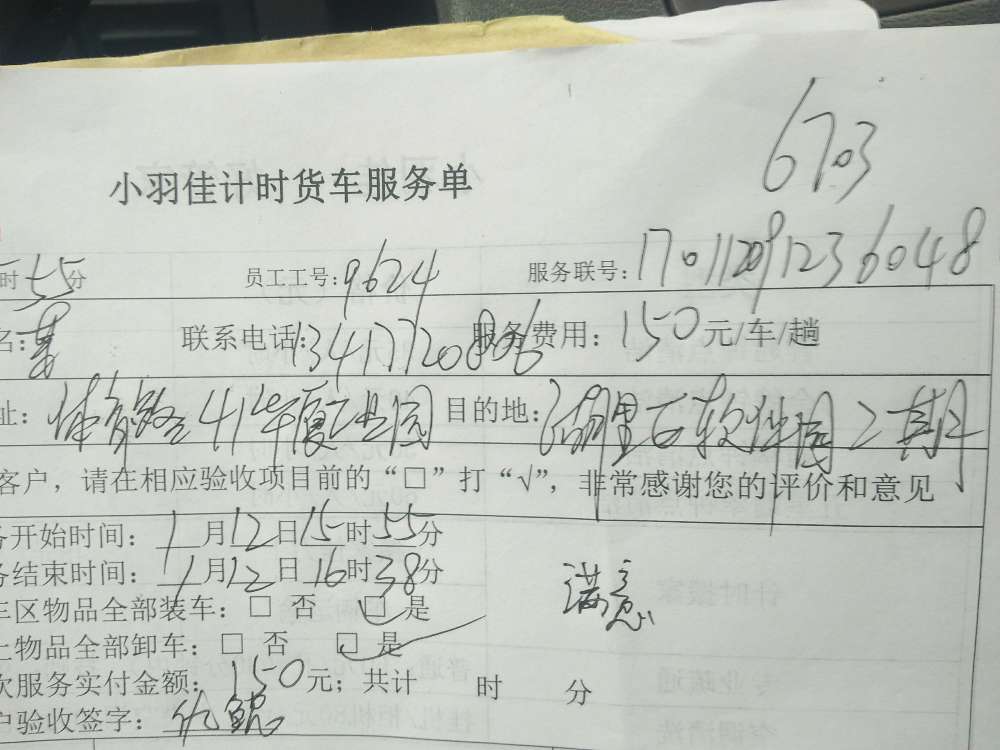 6703
小羽佳计时货车服务单
时 55分 员工工号:9624 服务联号:170112091236048
名: 联系电话:13417720806 服务费用:150元/车/趟
址:体育路41 园 目的地:湖里区软件园二期
客户，请在相应验收项目前的“□”打“√”，非常感谢您的评价和意见
务开始时间：1月12日15时55分
务结束时间：1月12日16时38分
车区物品全部装车：□ 否 □ 是
满意
上物品全部卸车：□ 否 □ 是
次服务实付金额：150元；共计 时 分
户验收签字：